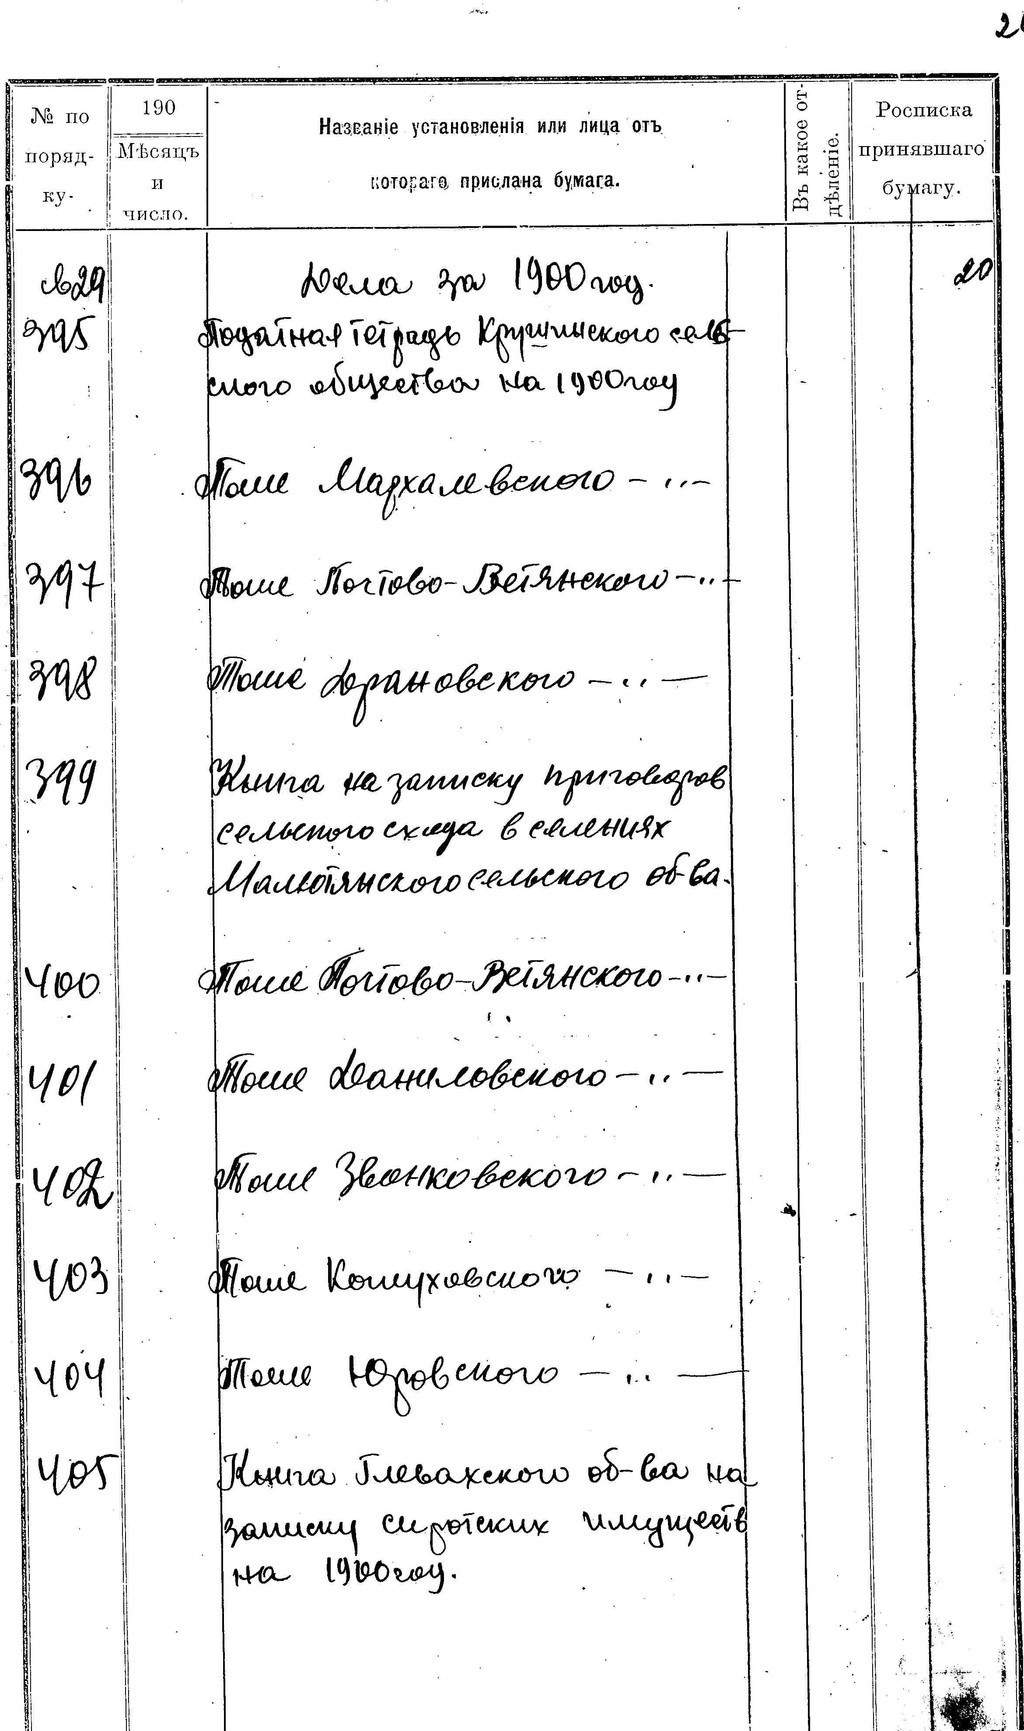 № по поряд- ку.
190
Мѣсяцъ и число.
Названіе установленія или лица отъ
котораго прислана бумага.
Въ какое от-
дѣленіе.
Росписка
принявшаго
бумагу.
св29 Дела за 1900 год. 20
395 Податная тетрадь Крушинского сель-
ского общества на 1900 год
396 Тоже Мархалевского - ,, -
397 Тоже Почтово-Ветянского - ,, -
398 Тоже Драновского - ,, -
399 Книга на записку приговоров
сельского схода в селениях
Малютянского сельского об-ва.
400 Тоже Почтово-Ветянского - ,, -
401 Тоже Даниловского - ,, -
402 Тоже Звонковского - ,, -
403 Тоже Кожуховского - ,, -
404 Тоже Юровского - ,, -
405 Книга Глевахского об-ва на
записку сиротских имуществ
на 1900 год.